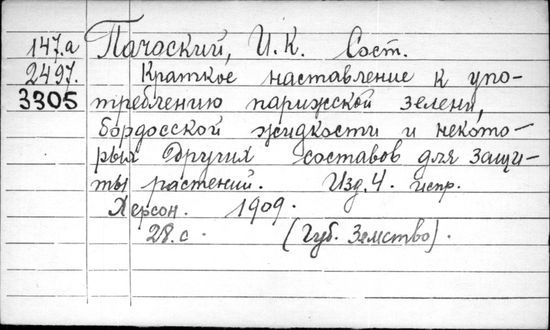 147.а Пачоский, И.К. Сост.
2497. Краткое наставление к упо-
3305 треблению парижской зелени,
бордосской жидкости и некото-
рых других составов для защи-
ты растений. Изд. 4. испр.
Херсон. 1909.
28.с. (Губ. Земство).